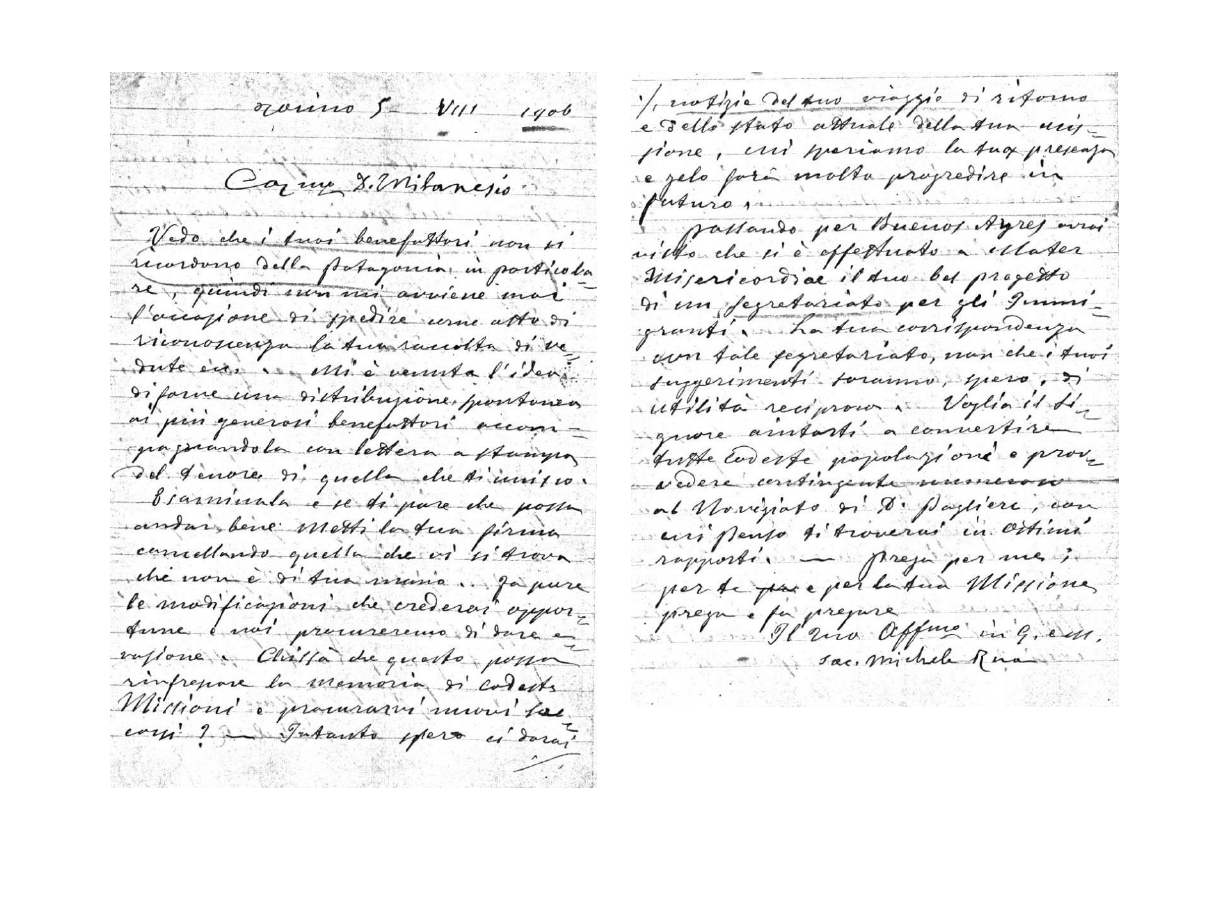 Torino 5 VIII 1906
Car.mo D. Milanesio
Vedo che i tuoi benefattori non si
ricordono della Patagonia in particola-
re, quindi non mi avviene mai
l'occasione di spedire come atto di
riconoscenza la tua raccolta di ve-
dute ecc. Mi è venuta l'idea
di farne una distribuzione spontanea
ai più generosi benefattori accom-
pagnandola con lettera a stampa
del tenore di quella che ti unisco.
Esaminala e se ti pare che possa
andar bene metti la tua firma
cancellando quella che vi si trova
che non è di tua mano. Fa pure
le modificazioni che crederai oppor-
tune e noi procureremo di dare e-
vasione. Chissà che questo possa
rinfrescare la memoria di codeste
Missioni e procurarvi nuovi soc-
corsi? — Intanto spero ci darai
./. notizie del tuo viaggio di ritorno
e dello stato attuale della tua mis-
sione, cui speriamo la tua presenza
e zelo farà molto progredire in
futuro.
Passando per Buenos Ayres avrai
visto che si è effettuato a Mater
Misericordiae il tuo bel progetto
di un segretariato per gli Immi-
granti. La tua corrispondenza
con tale segretariato, non che i tuoi
suggerimenti saranno, spero, di
utilità reciproca. Voglia il Si-
gnore aiutarti a convertire
tutte codeste popolazioni e prov-
vedere contingente numeroso
al Noviziato di D. Pagliere, con
cui penso ti troverai in ottimi
rapporti. — Prega per me;
per te e per la tua Missione
prega e fa pregare
Il tuo Aff.mo in G. e M.
Sac. Michele Rua